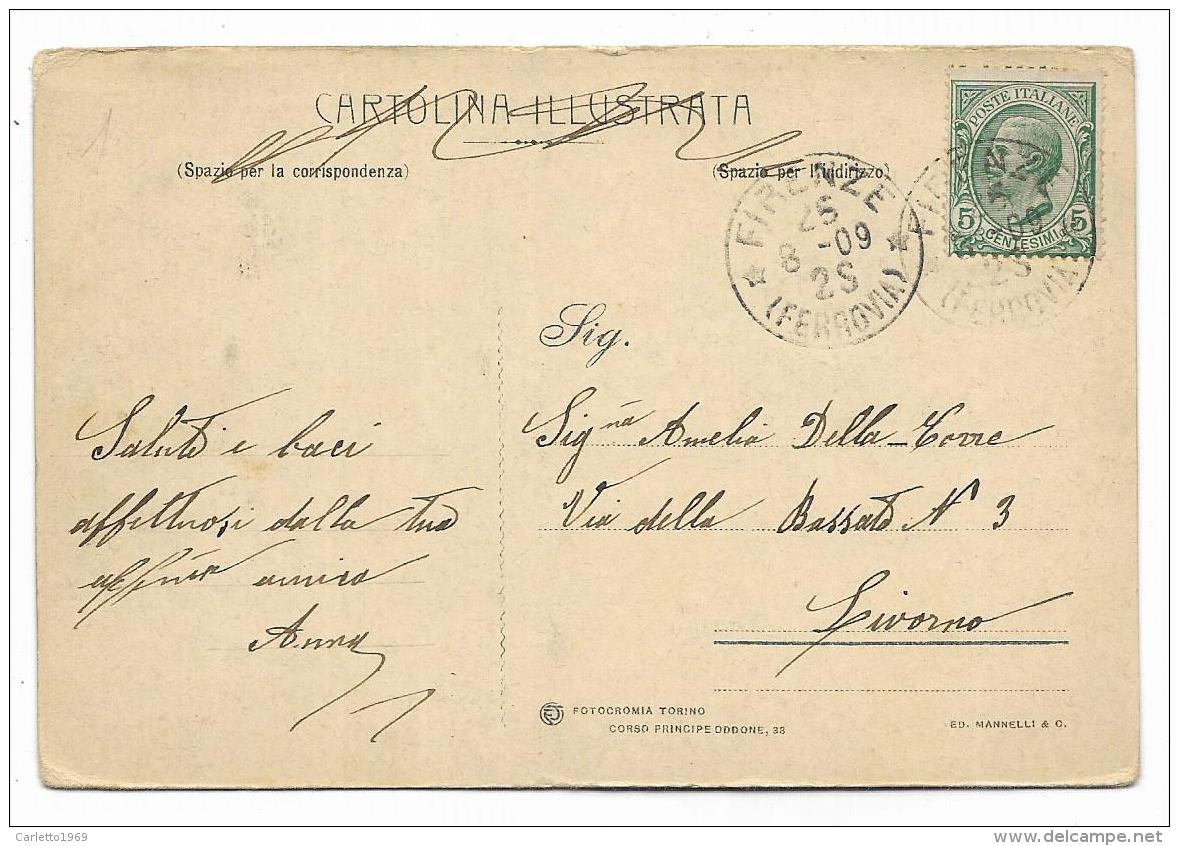 CARTOLINA ILLUSTRATA
(Spazio per la corrispondenza)
(Spazio per l'indirizzo)
POSTE ITALIANE
5 5
CENTESIMI
FIRENZE
2S
8 -09
2S
(FERROVIA)
09
2S
(FERROVIA)
1
Sig.
Sig.na Amelia Della-Torre
Via della Bassata N 3
Livorno
Saluti e baci
affettuosi dalla tua
aff.ma amica
Anna
FOTOCROMIA TORINO
CORSO PRINCIPE ODDONE, 33
ED. MANNELLI & C.
Carletto1969
delcampe.net